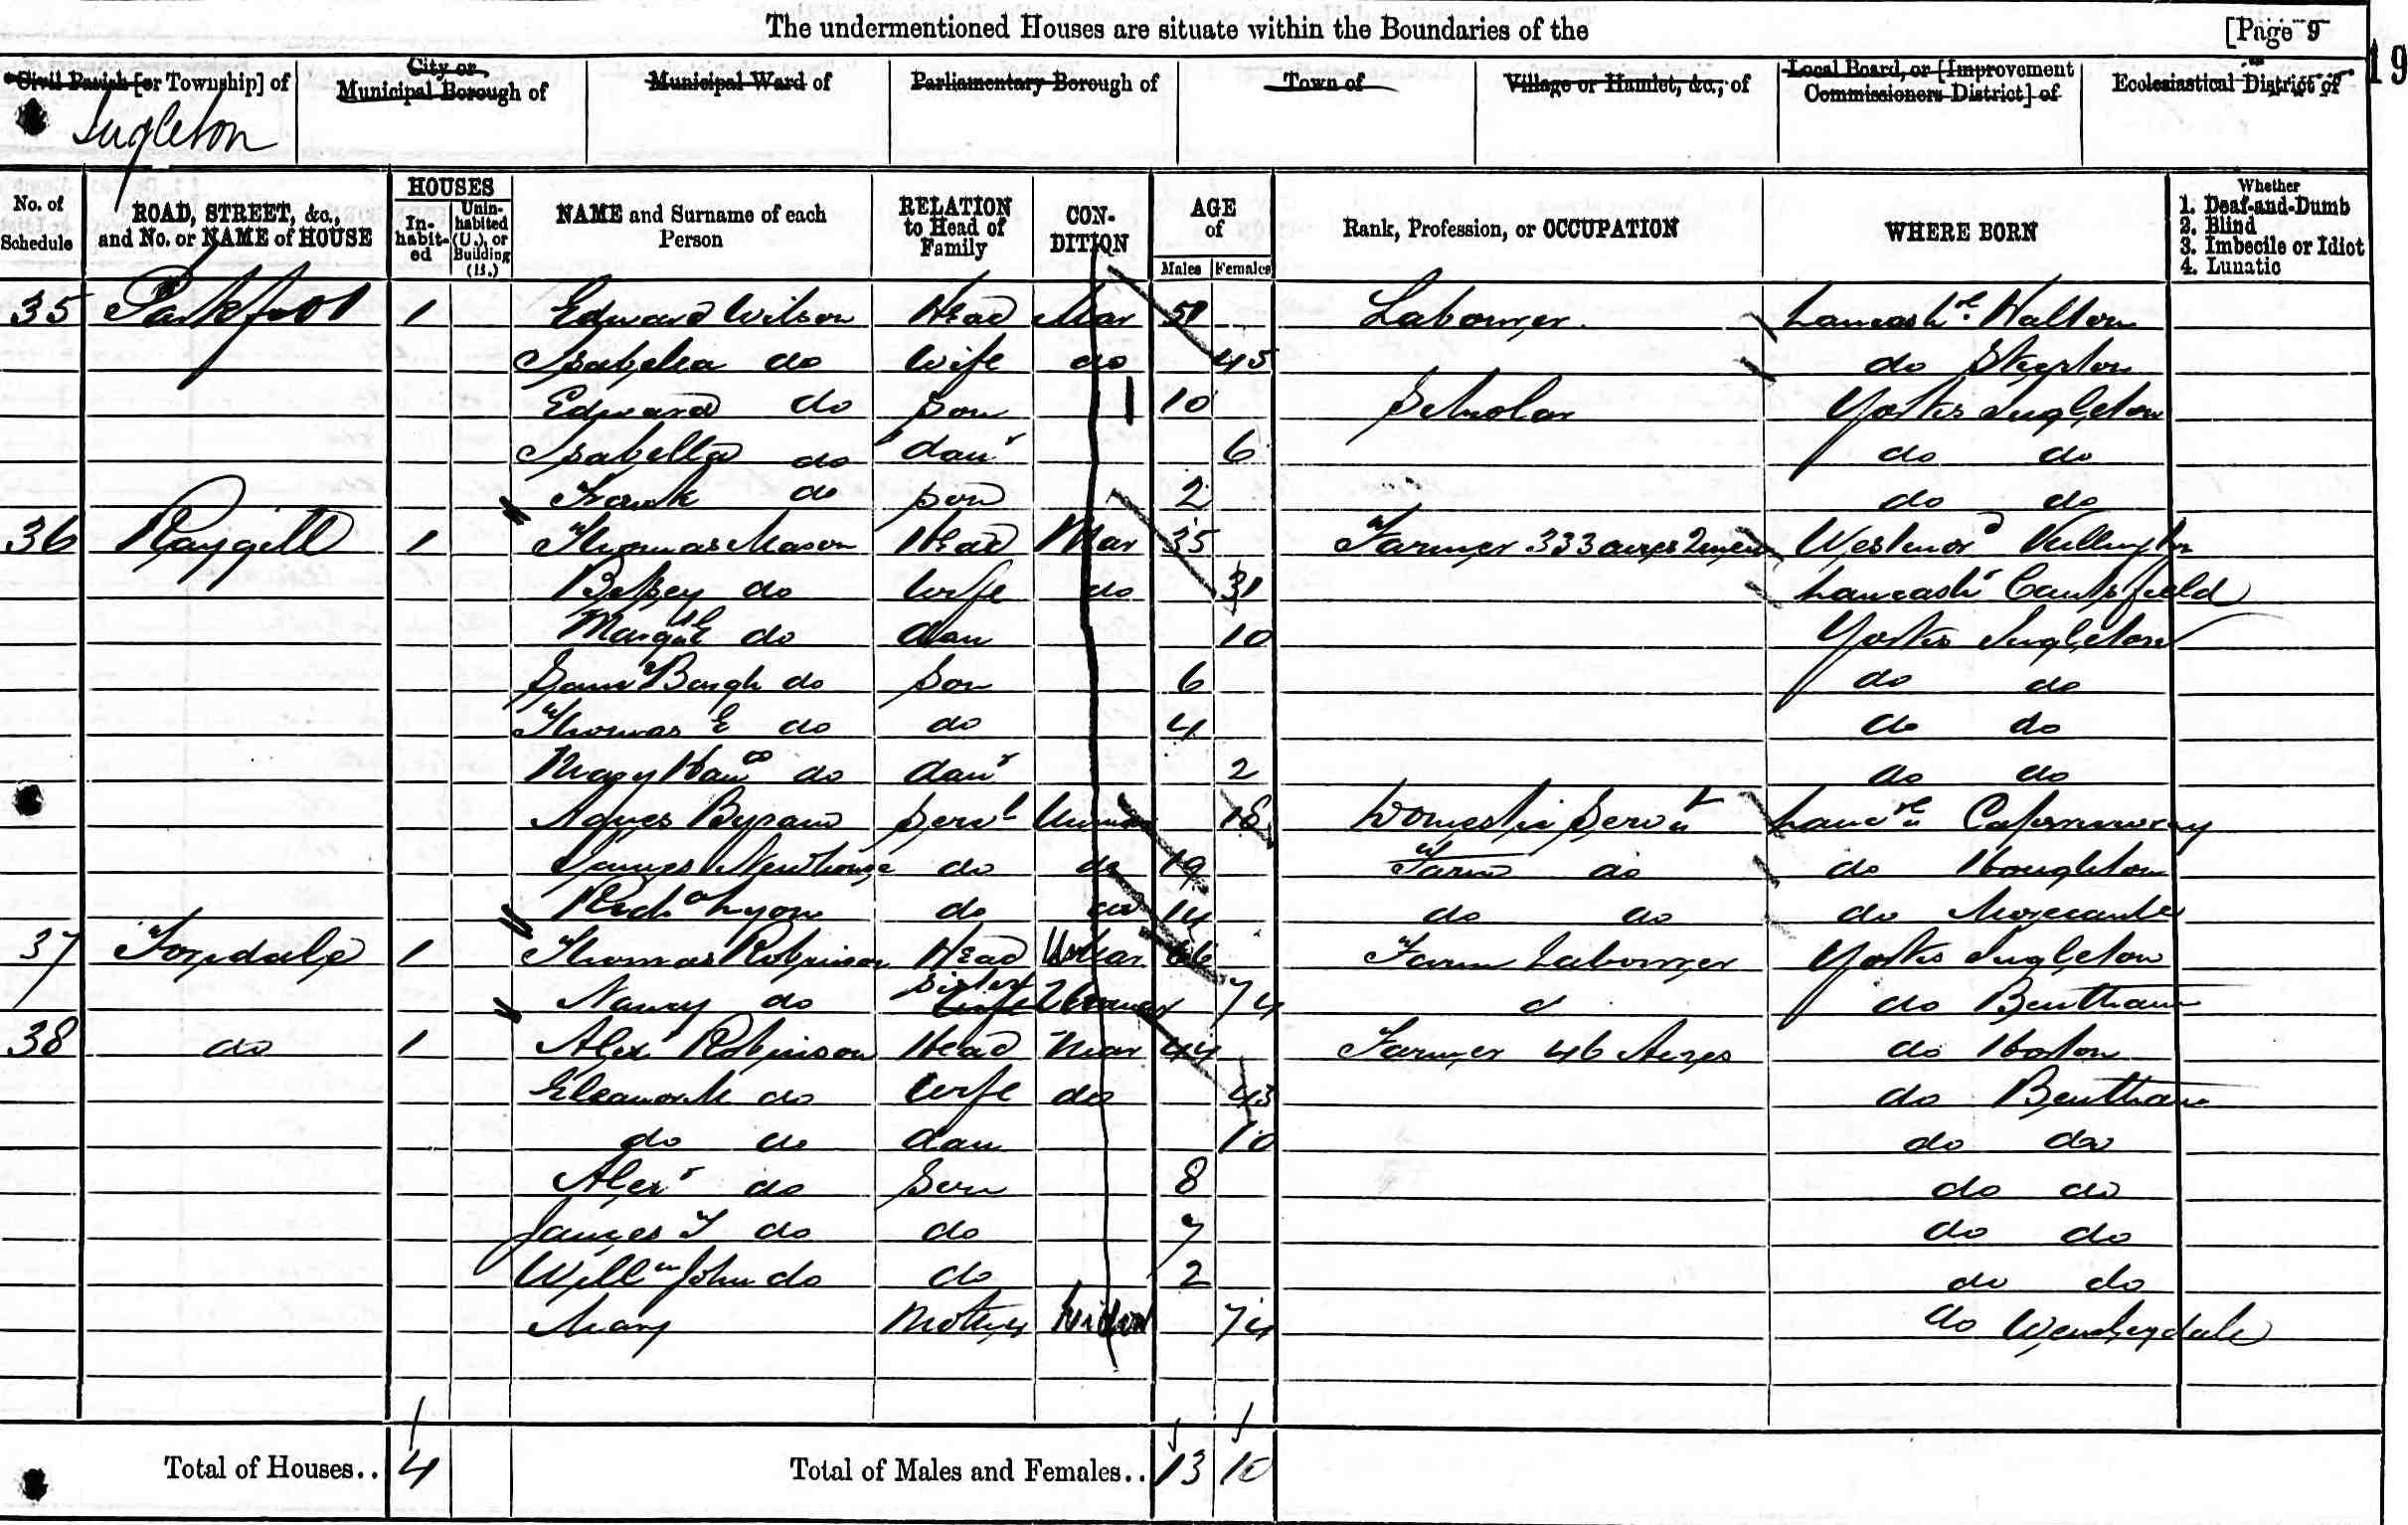 The undermentioned Houses are situate within the Boundaries of the [Page 9
19
Civil Parish [or Township] of City or Municipal Borough of Municipal Ward of Parliamentary Borough of Town of Village or Hamlet, &c., of Local Board, or [Improvement Commissioners District] of Ecclesiastical District of
Ingleton
No. of Schedule ROAD, STREET, &c., and No. or NAME of HOUSE HOUSES In-habit-ed Unin-habited (U.), or Building (B.) NAME and Surname of each Person RELATION to Head of Family CON-DITION AGE of Males Females Rank, Profession, or OCCUPATION WHERE BORN Whether 1. Deaf-and-Dumb 2. Blind 3. Imbecile or Idiot 4. Lunatic
35 Parkfoot 1 Edward Wilson Head Mar 51 Labourer Lancashre Halton
Isabella do Wife do 45 do
Edward do son 10 Scholar Yorks Ingleton
Isabella do daur 6 do do
Frank do son 2 do do
36 Raygill 1 Thomas Mason Head Mar 35 Farmer 333 acres 2 men Westmord
Betsey do Wife do 31 Lancashr Cantsfield
Margt E do dau 10 Yorks Ingleton
Saml Bargh do Son 6 do do
Thomas E do do 4 do do
Mary Hanh do daur 2 do do
Agnes Byram Servt Unmar 18 Domestic Servt Lancre
James Newhouse do do 19 Farm do do Houghton
Richd Lyon do do 14 do do do Morecambe
37 Yorpdale 1 Thomas Robinson Head UnMar 66 Farm Labourer Yorks Ingleton
Nancy do sister Wife Unmar 74 do Bentham
38 do 1 Alexr Robinson Head Mar 44 Farmer 46 Acres do Horton
Eleanor M do Wife do 43 do Bentham
do do dau 10 do do
Alexr do Son 8 do do
James T do do 7 do do
Willm John do do 2 do do
Mary Mother Widow 74 do Wensleydale
Total of Houses.. 4 Total of Males and Females.. 13 10